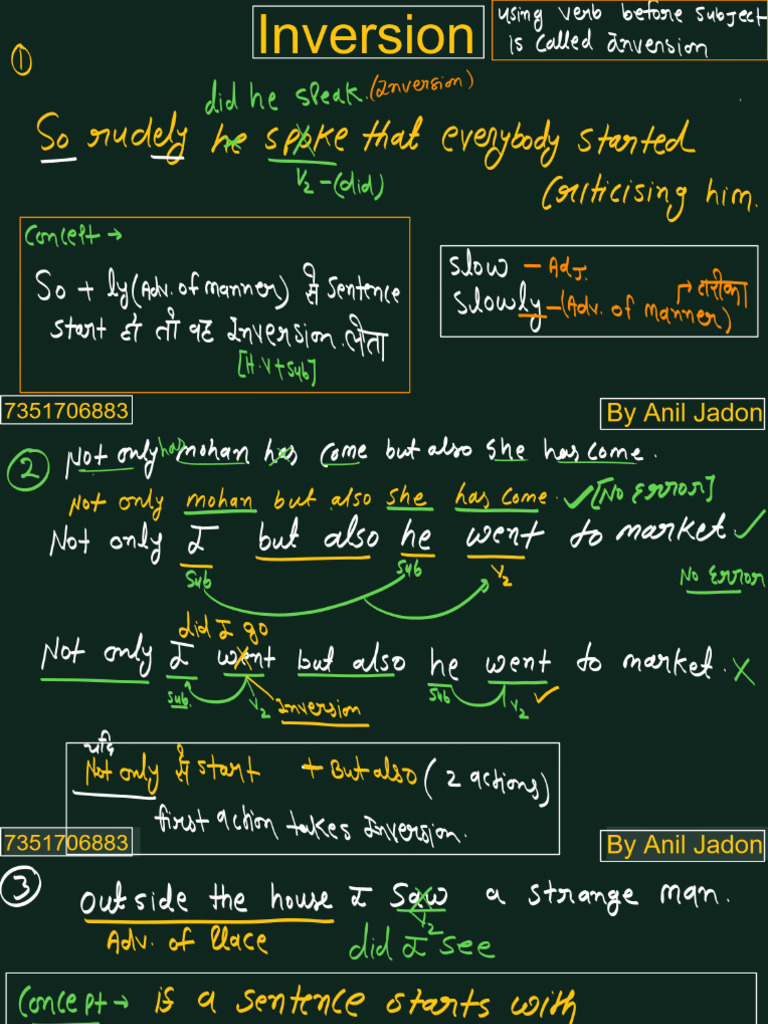 Inversion
using verb before subject
is called Inversion
①
did he speak. (Inversion)
So rudely he spoke that everybody started
V2-(did)
Criticising him.
Concept →
So + ly (Adv. of manner) से sentence
start हो तो वह Inversion लेता
[H.V+Sub]
slow - Adj.
slowly - (Adv. of manner) → तरीका
7351706883
By Anil Jadon
② Not only has mohan has come but also she has come.
Not only mohan but also she has come. ✓ [No Error]
Not only I but also he went to market ✓
Sub Sub V2
No Error
did I go
Not only I went but also he went to market. X
Sub. V2 Inversion Sub V2 ✓
यदि
Not only से start + But also (2 actions)
first action takes Inversion.
7351706883
By Anil Jadon
③ outside the house I saw a strange man.
V2
Adv. of Place did I see
Concept → is a sentence starts with